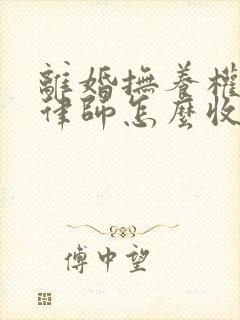 離婚撫養權
律師怎麼收
傅中望